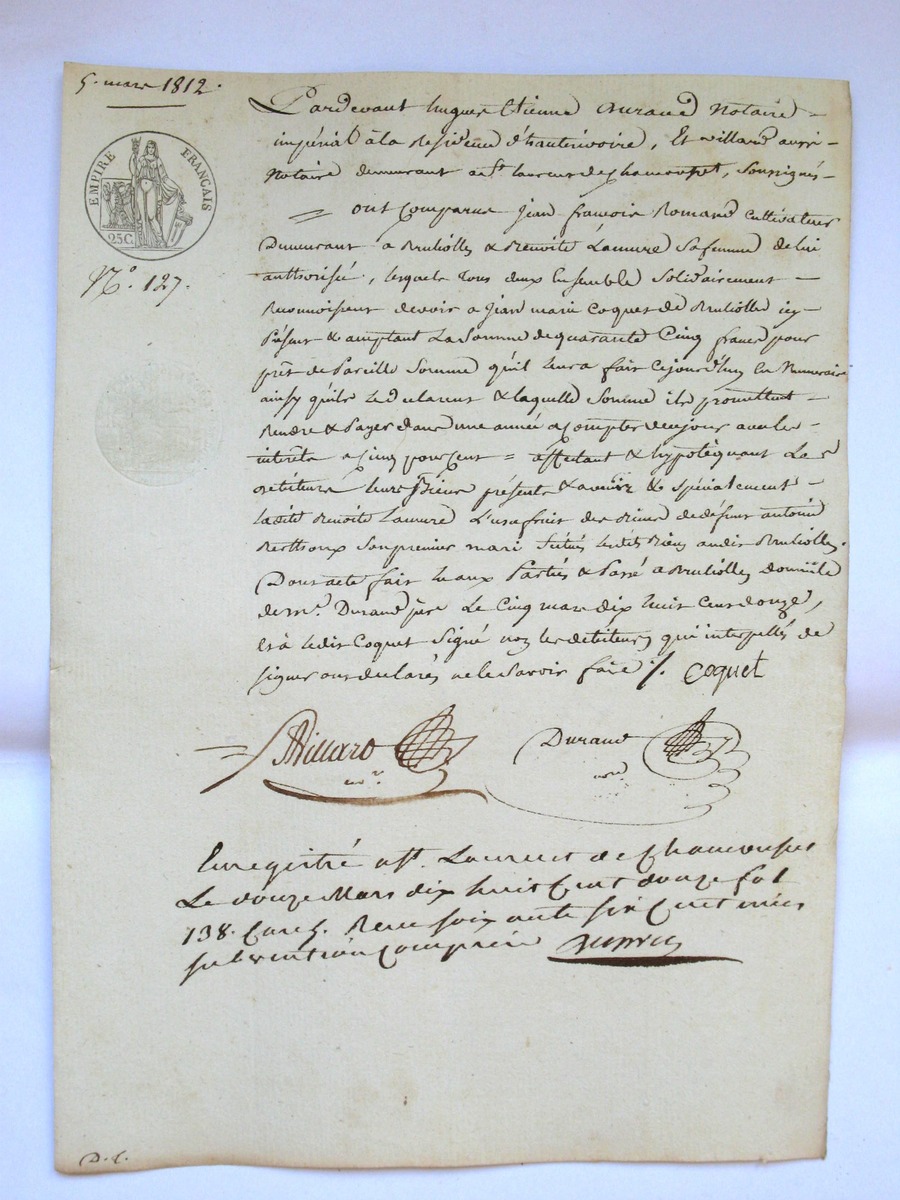 5. mars 1812.
EMPIRE FRANÇAIS
25C.
N.o 127.
Pardevant hugues Etienne Durand Notaire
impérial à la Residence d'hauterivoire, Et villard aussi
Notaire demeurant a St laurent de Chamousset, soussignés
ont comparus Jean francois Romand cultivateur
Demeurant à Brullioles & Benoite Laurure sa femme de lui
authorisée, lesquels tous deux Ensemble solidairement
Reconnoissent devoir a Jean marie Coquet de Brullioles icy
Présent & acceptant La Somme de quarante Cinq francs pour
prêt de Pareille Somme qu'il leur a fait Cejourd'huy En Numeraire
ainsy qu'ils le declarent & laquelle Somme ils promettent
Rendre & Payer dans une année a Compter de ce jour avec les
intérêts a Cinq pour Cent = affectant & hypotèquant Les
debiteurs leurs Biens présents & avenir & spécialement
ladite Benoite Laurure L'usufruit des Biens de defunt antoine
Berthoux Son premier mari situés lesdits Biens audit Brullioles.
Dont acte fait lu aux Parties & Passé a Brullioles domicile
de Mr. Durand père Le Cinq mars dix huit Cent douze,
et à ledit Coquet Signé non les debiteurs qui interpellés de
signer ont declarés ne le Savoir faire ./. Coquet
Villard
nore
Durand
nore
Enregistré a St. Laurent de Chamousset
Le douze Mars dix huit Cent douze fol
138. Case 5. Recu soixante six Centimes
subvention Comprise
D. C.